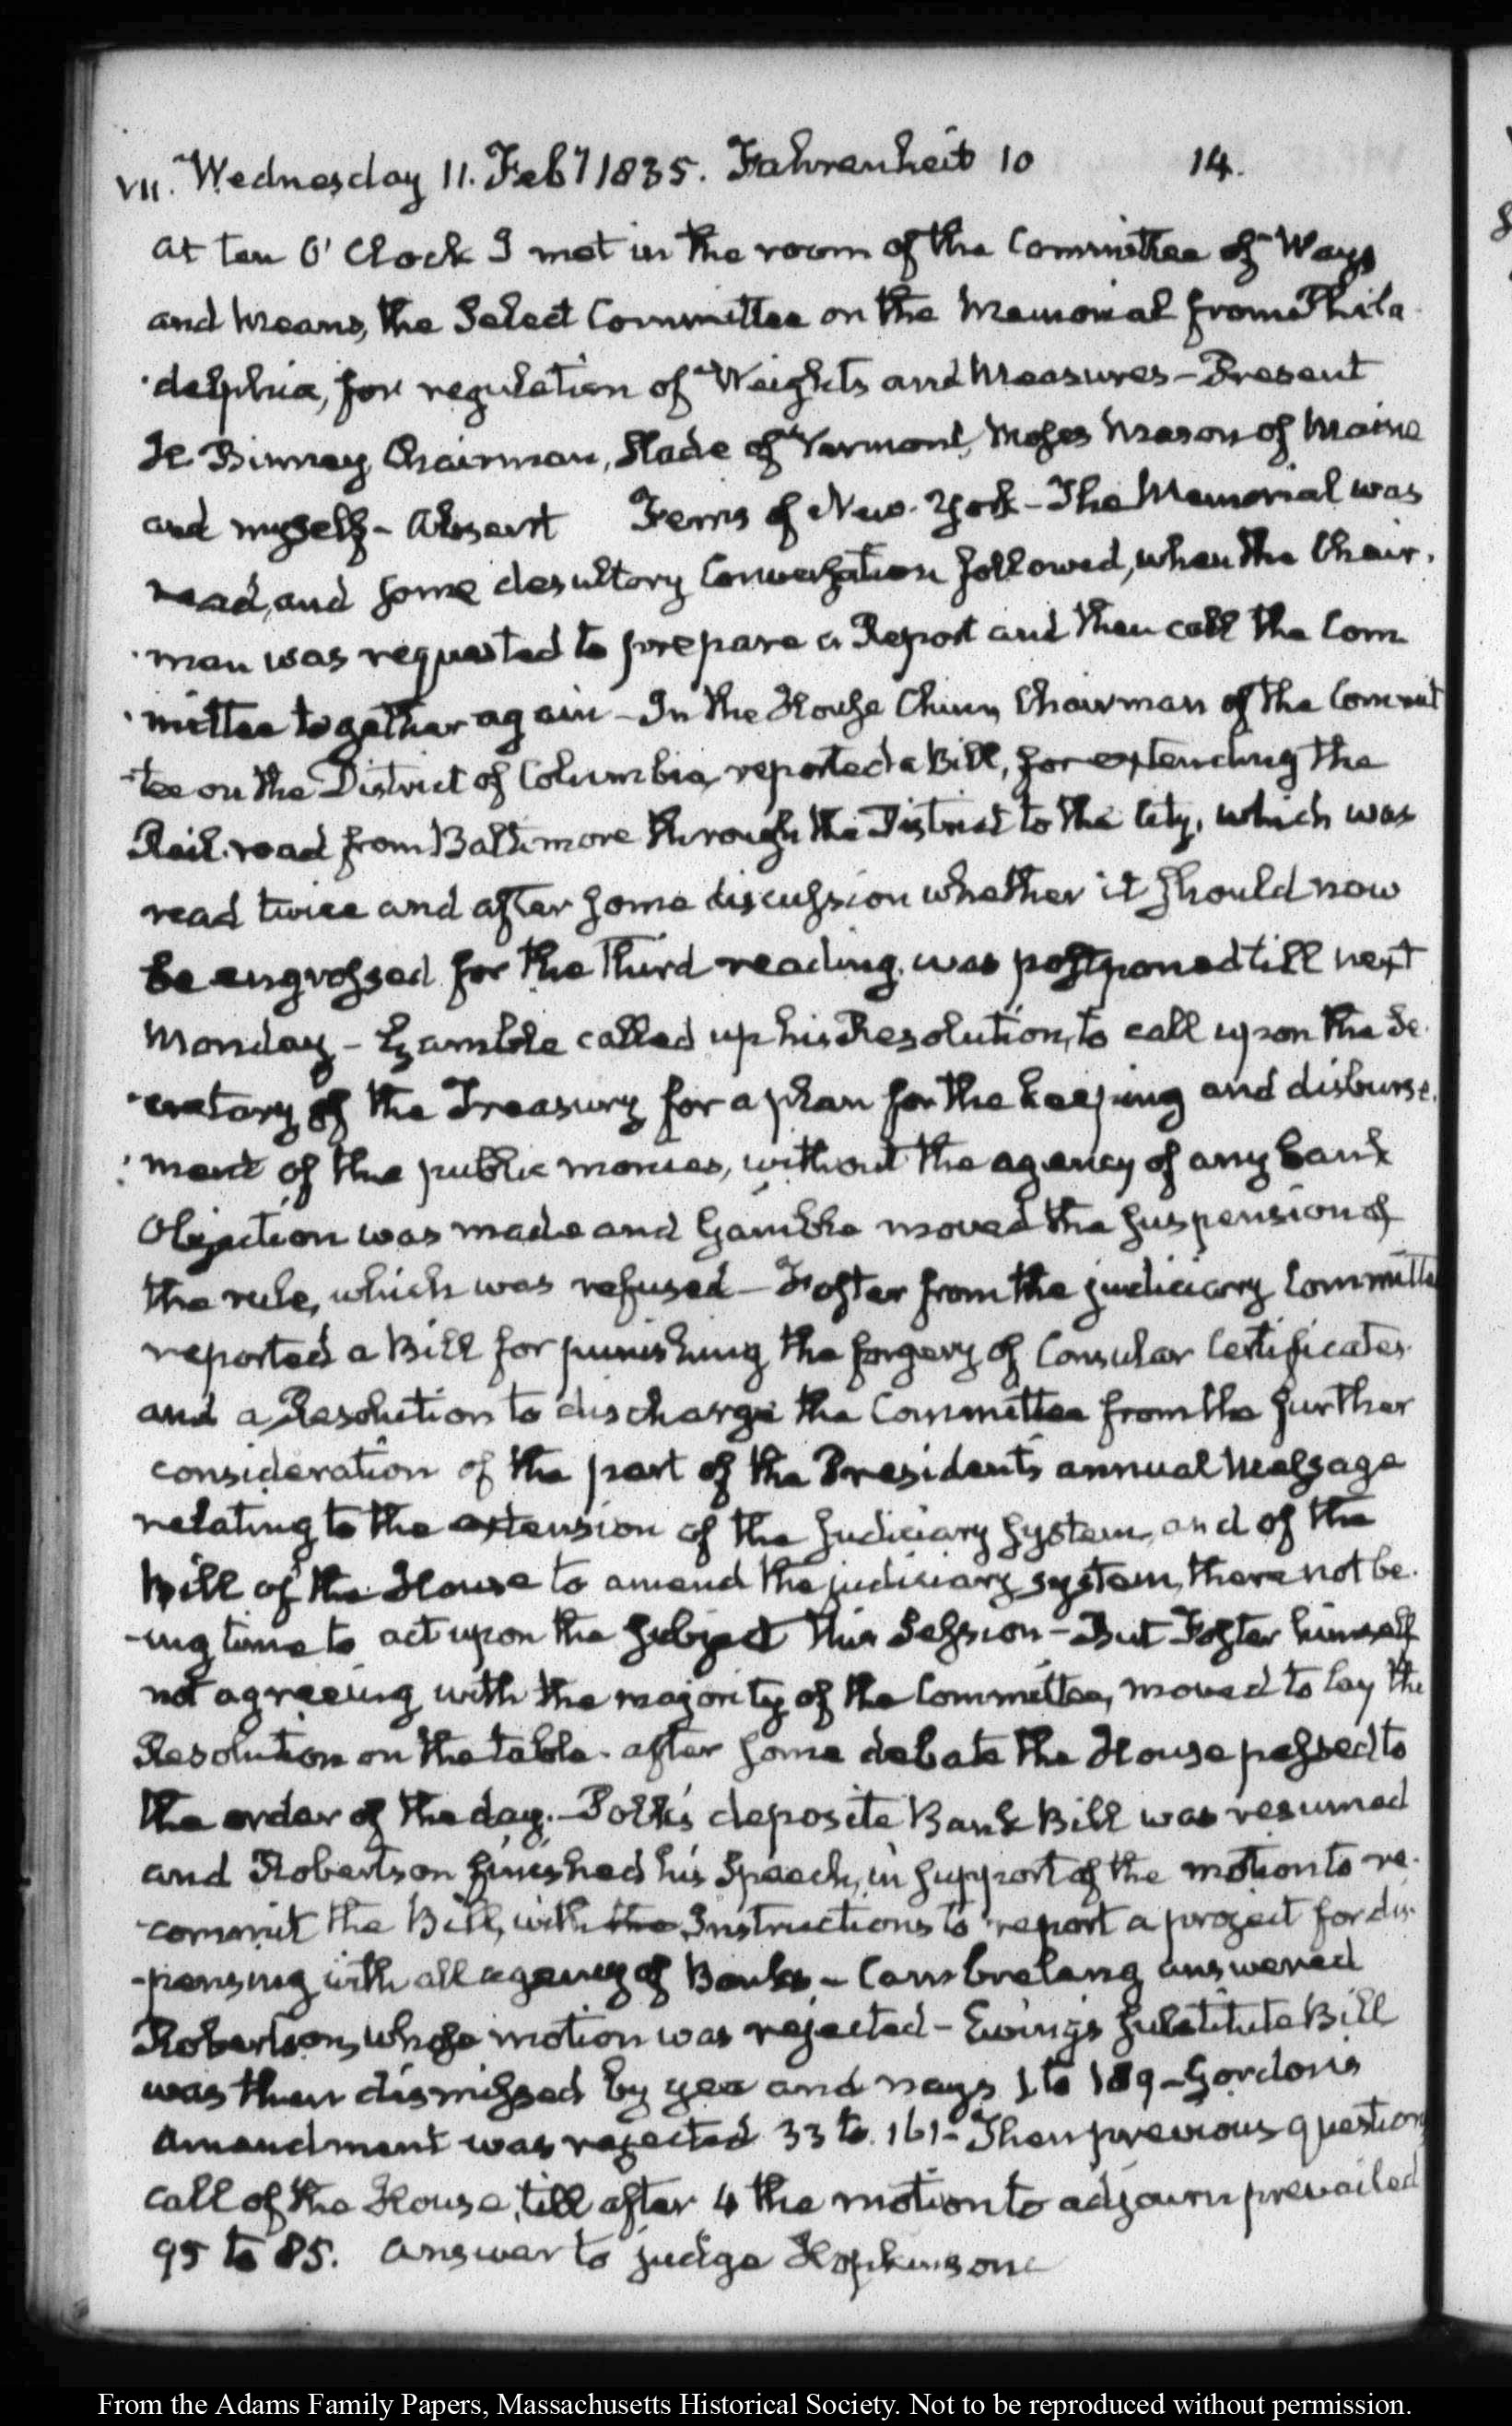 VII. Wednesday 11. Feby 1835. Fahrenheit 10 14.
At ten O'Clock I met in the room of the Committee of Ways
and Means, the Select Committee on the Memorial from Phila-
-delphia, for regulation of Weights and Measures – Present
H. Binney Chairman, Slade of Vermont, Moses Mason of Maine
and myself – Absent Ferris of New-York – The Memorial was
read, and some desultory Conversation followed, when the Chair-
-man was requested to prepare a Report and then call the Com-
-mittee together again – In the House Chinn Chairman of the Commit-
-tee on the District of Columbia reported a Bill, for extending the
Rail-road from Baltimore through the District to the City, which was
read twice and after some discussion whether it should now
be engrossed for the third reading, was postponed till next
Monday – Gamble called up his Resolution, to call upon the Se-
-cretary of the Treasury for a plan for the keeping and disburse-
-ment of the public monies, without the agency of any bank
Objection was made and Gamble moved the suspension of
the rule, which was refused – Foster from the judiciary Committee
reported a Bill for punishing the forgery of Consular Certificates
and a Resolution to discharge the Committee from the further
consideration of the part of the President's annual Message
relating to the extension of the Judiciary System, and of the
Bill of the House to amend the judiciary system, there not be-
-ing time to act upon the subject this Session – But Foster himself
not agreeing with the majority of the Committee, moved to lay the
Resolution on the table. After some debate the House passed to
the order of the day. – Polk's deposite Bank Bill was resumed
and Robertson finished his Speech, in support of the motion to re-
-commit the Bill, with the Instructions to report a project for dis-
-pensing with all agency of Banks – Cambreleng answered
Robertson, whose motion was rejected – Ewing's substitute Bill
was then dismissed by yea and nays 1 to 189 – Gordon's
Amendment was rejected 33 to 161 – Then previous question
call of the House, till after 4 the motion to adjourn prevailed
95 to 85. Answer to judge Hopkinson
From the Adams Family Papers, Massachusetts Historical Society. Not to be reproduced without permission.